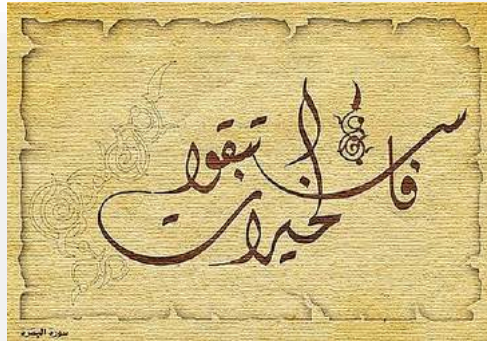 فاستبقوا الخيرات
سورة البقره